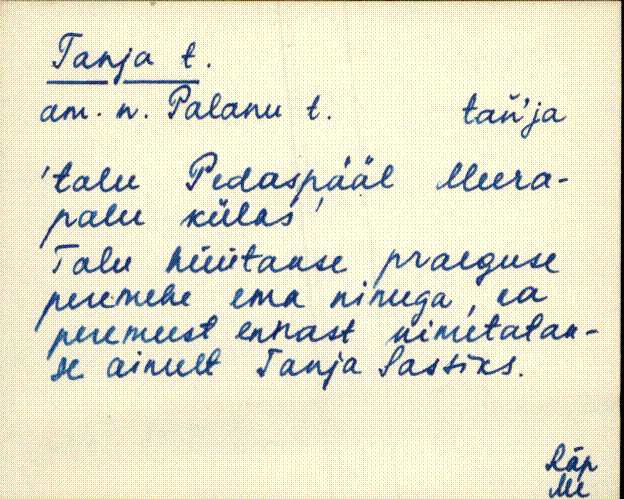 Tanja t.
am. n. Palanu t. tań'ja
'talu Pedaspääl Meera-
palu külas'
Talu hüütakse praeguse
peremehe ema nimega, ka
peremeest ennast nimetatak-
se ainult Tanja Sassiks.
Räp
Me